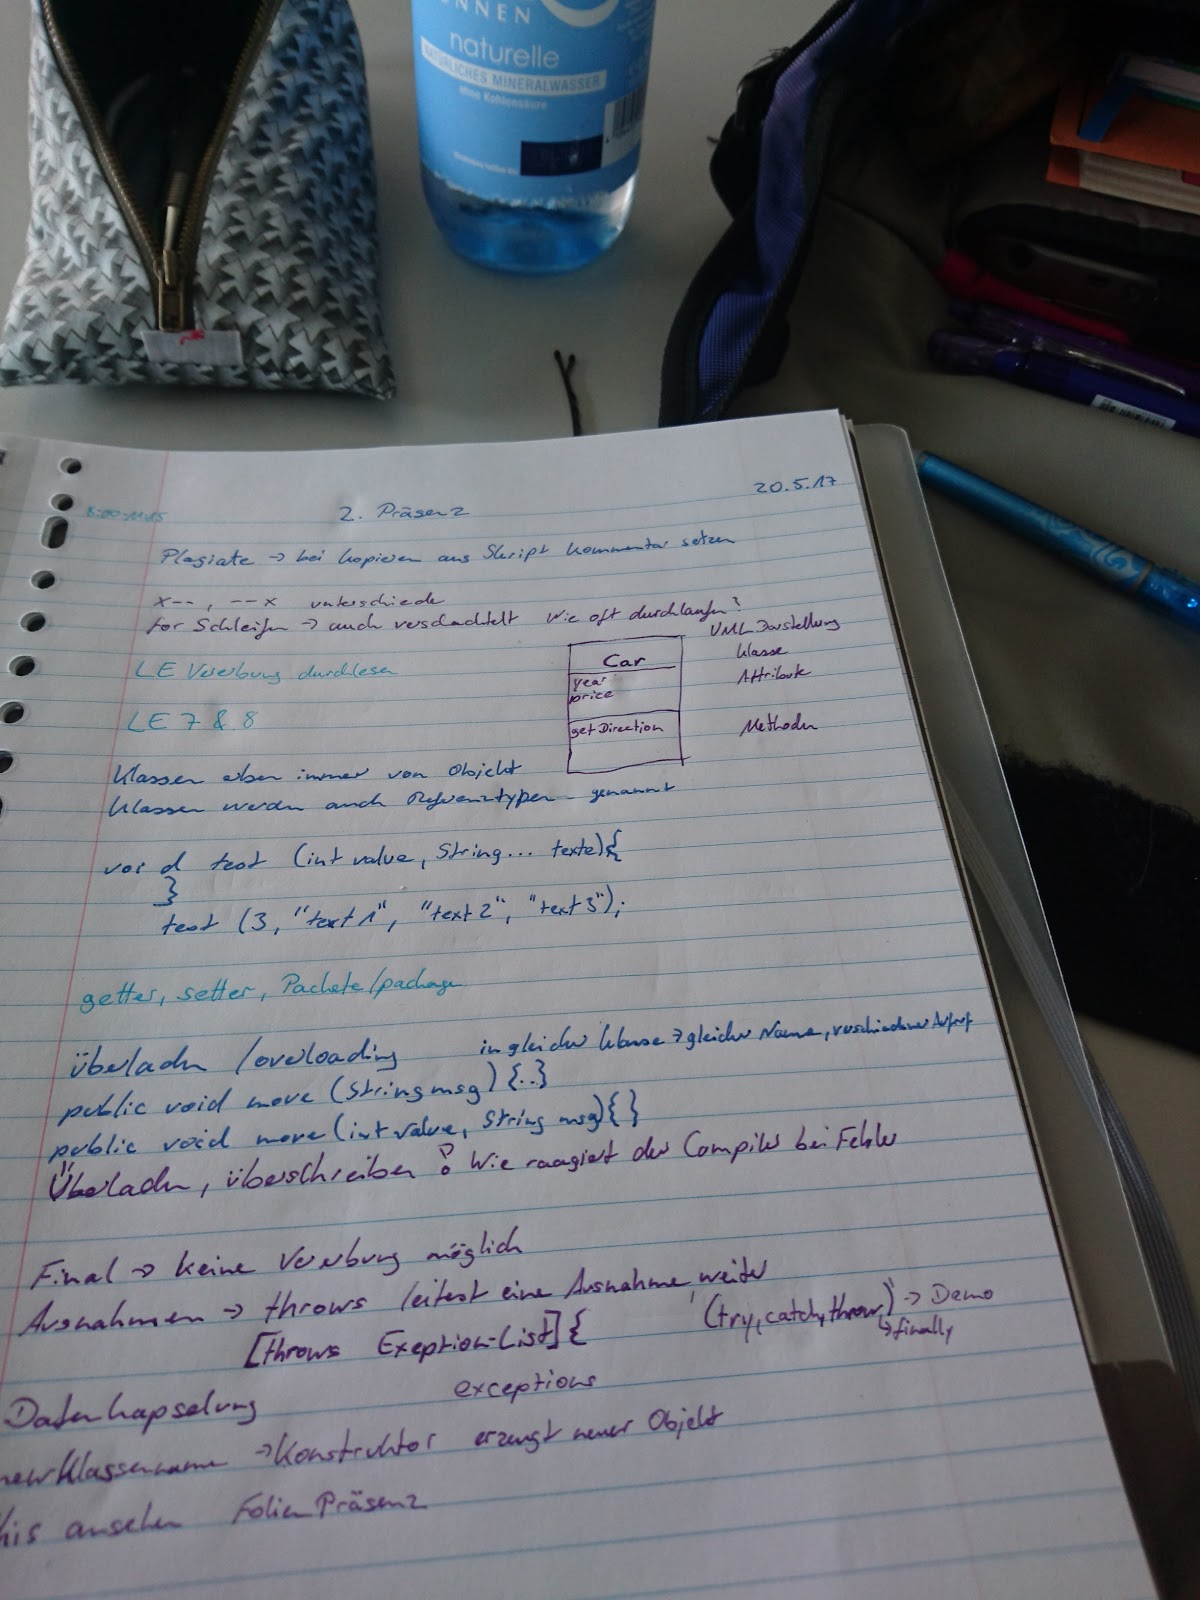 UNNEN
naturelle
NATÜRLICHES MINERALWASSER
ohne Kohlensäure
2. Präsenz
20.5.17
Plagiate -> bei kopieren aus Skript Kommentar setzen
x--, --x unterschiede
for Schleifen -> auch verschachtelt Wie oft durchlaufen?
UML Darstellung
LE Vererbung durchlesen
Car
Klasse
year
price
Attribute
LE 7 & 8
getDirection
Methoden
Klassen erben immer von Objekt
Klassen werden auch Referenztypen genannt
void test (int value, String... texte){
}
test (3, "text1", "text2", "text3");
getter, setter, Packete/package
überladen /overloading in gleicher Klasse -> gleicher Name, verschiedener Aufruf
public void move (String msg) {..}
public void move (int value, String msg){ }
Überladen, überschreiben ? Wie raagiert der Compiler bei Fehler
Final -> keine Vererbung möglich
Ausnahmen -> throws leitest eine Ausnahme weiter
(try, catch, throw) -> Demo
↳ finally
[throws Exeption-List]{
exceptions
Datenkapselung
new Klassenname -> Konstruktor erzeugt neuer Objekt
this ansehen Folien Präsenz